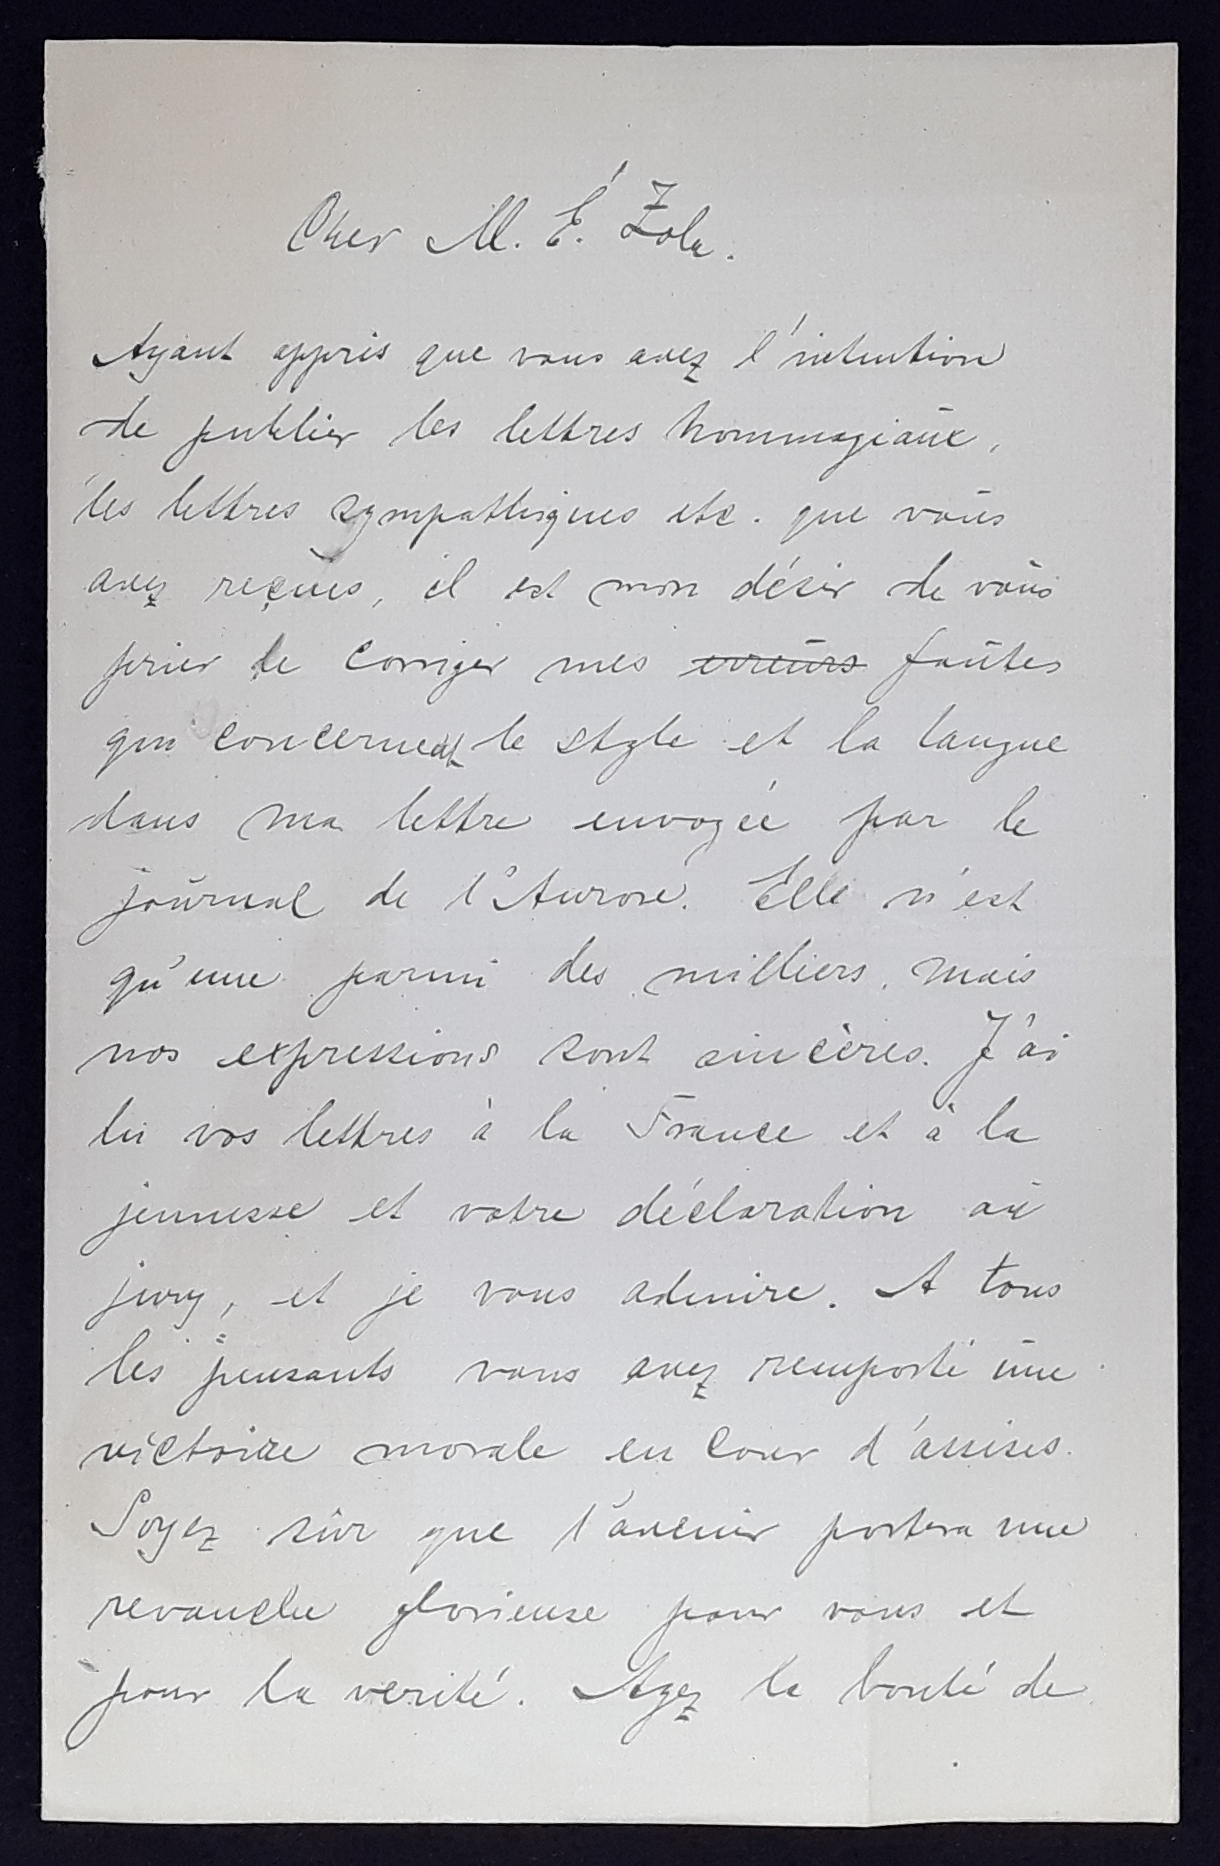 Cher M. É. Zola.
Ayant appris que vous avez l'intention
de publier les lettres hommagiaux,
les lettres sympathiques etc. que vous
avez reçues, il est mon désir de vous
prier de corriger mes erreurs fautes
qui concernent le style et la langue
dans ma lettre envoyée par le
journal de l'Aurore. Elle n'est
qu'une parmi des milliers, mais
nos expressions sont sincères. J'ai
lu vos lettres à la France et à la
jeunesse et votre déclaration au
jury, et je vous admire. A tous
les pensants vous avez remporté une
victoire morale en Cour d'assises.
Soyez sûr que l'avenir portera une
revanche glorieuse pour vous et
pour la verité. Ayez la bonté de